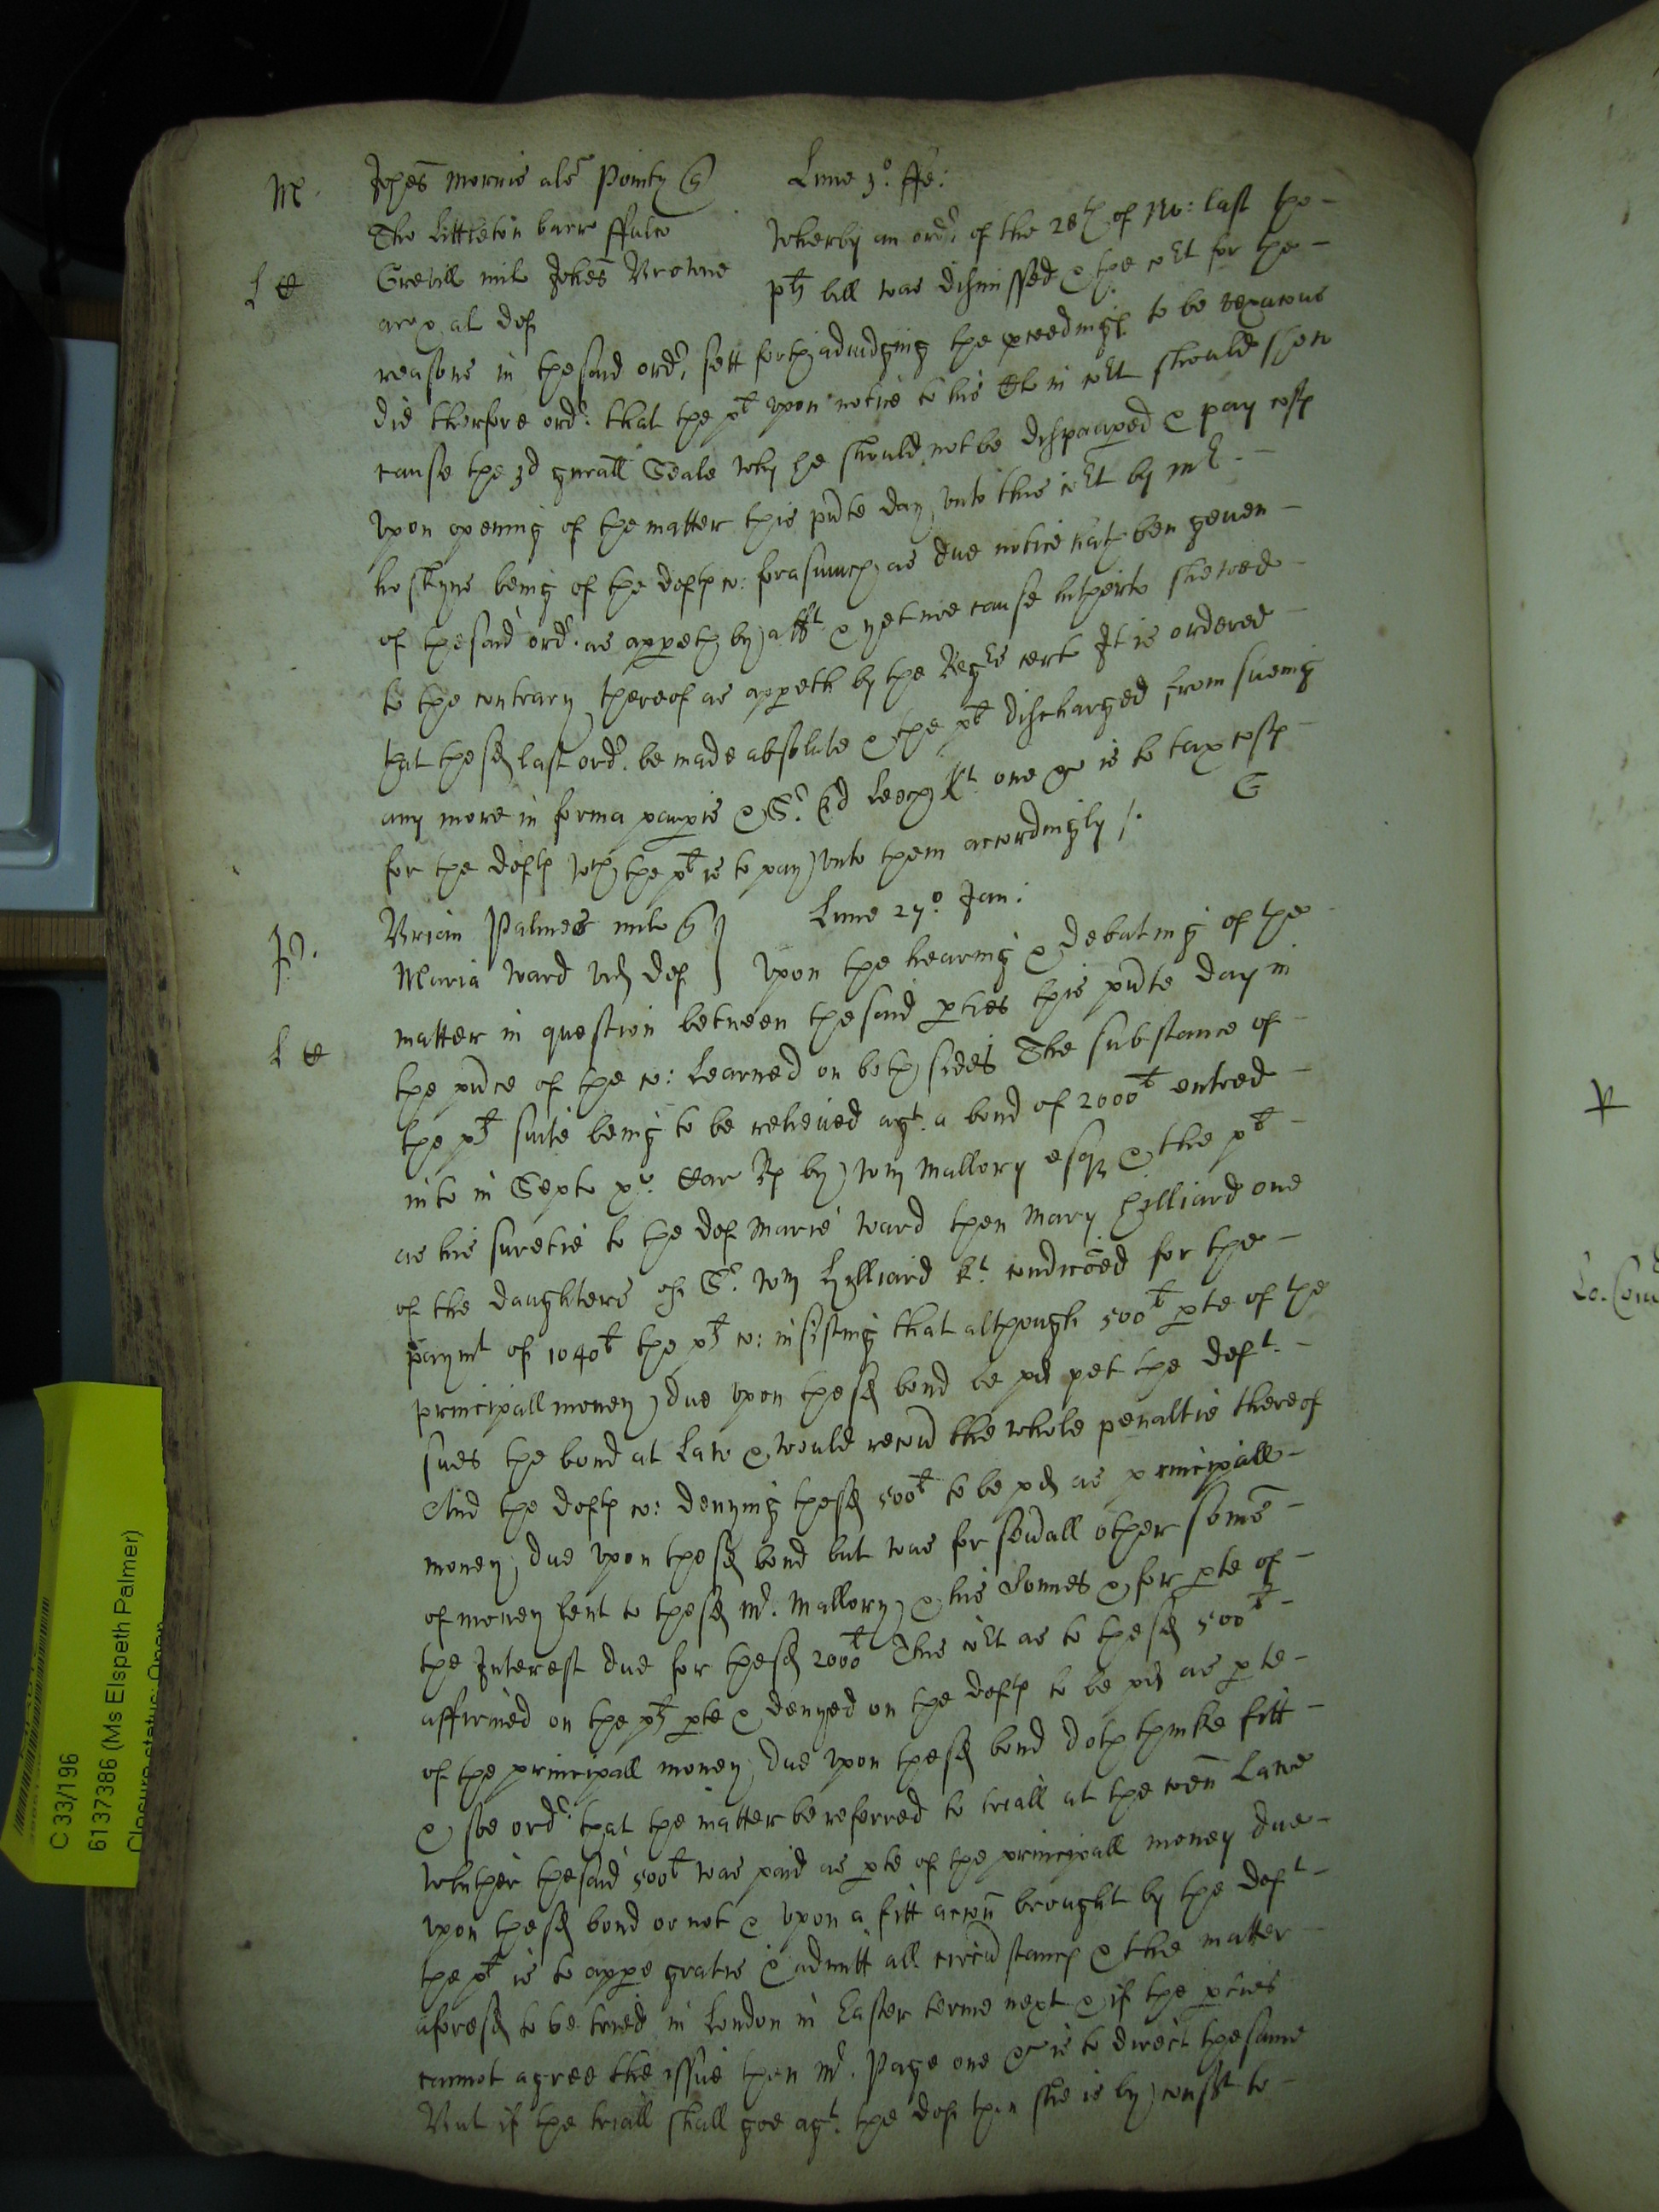 M. Johes Morris als Pointz q Lune 3º. ffe:
Tho Littleton barr ffulco Wherby an ordr. of the 28th of No: last the
L Grevill mil Johes Browne plts bill was dismissed & the cort for the
ar & al def
reasons in the said ordr. sett forth adiudging the proceedings to be vexatious
did therfore ordr. that the plt upon notice to his Clo in cort should shew
cause the 3d gnrall Seale why he should not be dispaupered & pay costs
Upon opening of the matter this pnte day unto this cort by mr
hoskyns being of the defts co: forasmuch as due notice hath ben geven
of the said ordr. as appeth by afft & yet noe cause hitherto shewed
to the contrary thereof as appeth by the Regrs cert It is ordered
that the sd last ordr. be made absolute & the plt discharged from sueing
any more in forma paupis & Sr. Ed Leech kt. one &c is to tax costs
for the defts wch the plt is to pay unto them accordingly /.
P. Brian Palmes mil q Lune 27º. Jan:
Maria Ward vid def Upon the hearing & debating of the
matter in question betweene the said pties this pnte day in
L the pnce of the co: Learned on both sides The substance of
the plts suite being to be releived agt. a bond of 2000l entred
into in Septr pr. Car Rs by Wm Mallory esqr & the plt
as his suretie to the def Marie Ward then Mary Hilliard one
of the daughters of Sr. Wm Hylliard kt. condicoed for the
paymt of 1040l the plts co: insisting that although 500l pte of the
principall money due upon the sd bond be pd yet the deft.
sues the bond at Law & would recou the whole penaltie thereof
And the defts co: denying the sd 500l to be pd as principall
money due upon the sd bond but was for seuall other somes
of money lent to the sd Mr. Mallory & his Sonnes & for pte of
the Interest due for the sd 2000l This cort as to the sd 500l
affirmed on the plts pte & denyed on the defts to be pd as pte
of the principall money due upon the sd bond doth thinke fitt
& soe ordr that the matter be referred to triall at the coen Lawe
whither the said 500l was paid as pte of the principall money due
upon the sd bond or not & upon a fitt acion brought by the deft
the plt is to appe gratis & admitt all circustancs & the matter
aforesd to be tried in London in Easter terme next & if the pties
cannot agree the issue then Mr. Page one &c is to direct the same
But if the triall shall goe agt. the def then she is by consent to
C 33/196
6137386 (Ms Elspeth Palmer)
Closure status: Open